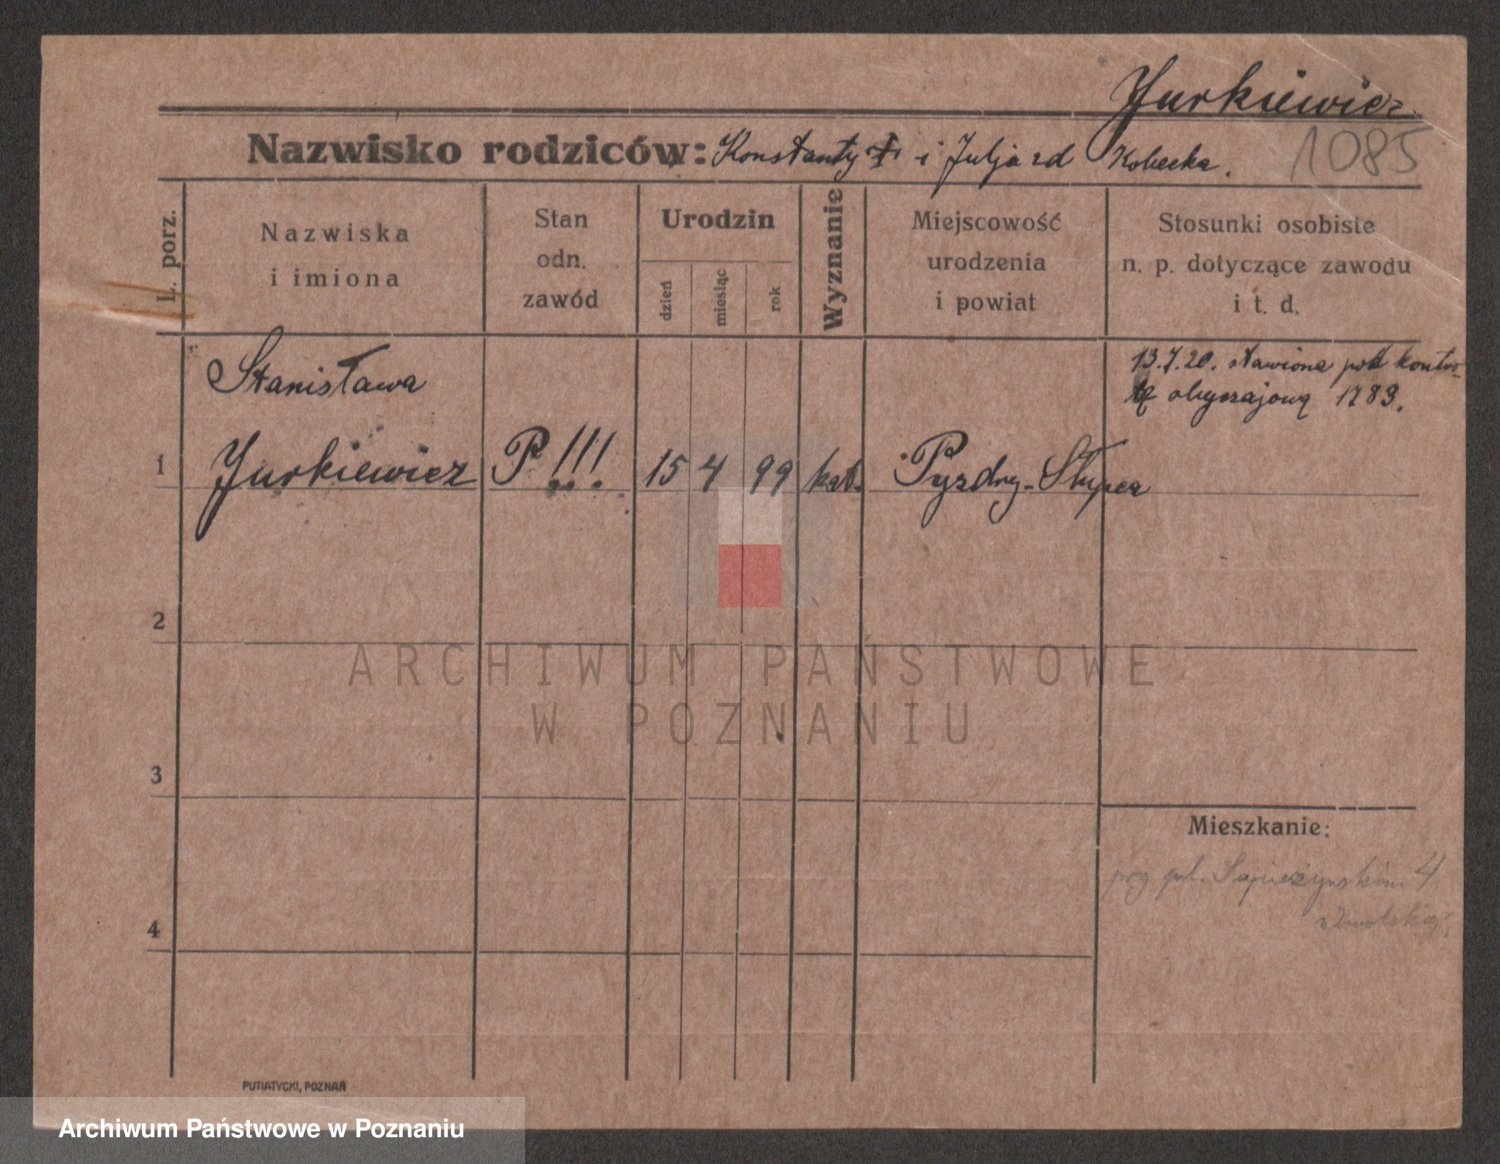 Jurkiewicz.
Nazwisko rodziców: Konstanty i Julja zd Kobecka.
1085
L. porz.
Nazwiska
i imiona
Stan
odn.
zawód
Urodzin
dzień
miesiąc
rok
Wyznanie
Miejscowość
urodzenia
i powiat
Stosunki osobiste
n. p. dotyczące zawodu
i t. d.
13.7.20. stawiona pod kontro-
lę obyczajową 1783.
Stanisława
1 Jurkiewicz P !!! 15 4 99 kat. Pyzdry-Słupca
2
ARCHIWUM PAŃSTWOWE
W POZNANIU
3
Mieszkanie:
przy pl. Sapieżyńskim 4
4
PUTIATYCKI, POZNAŃ
Archiwum Państwowe w Poznaniu